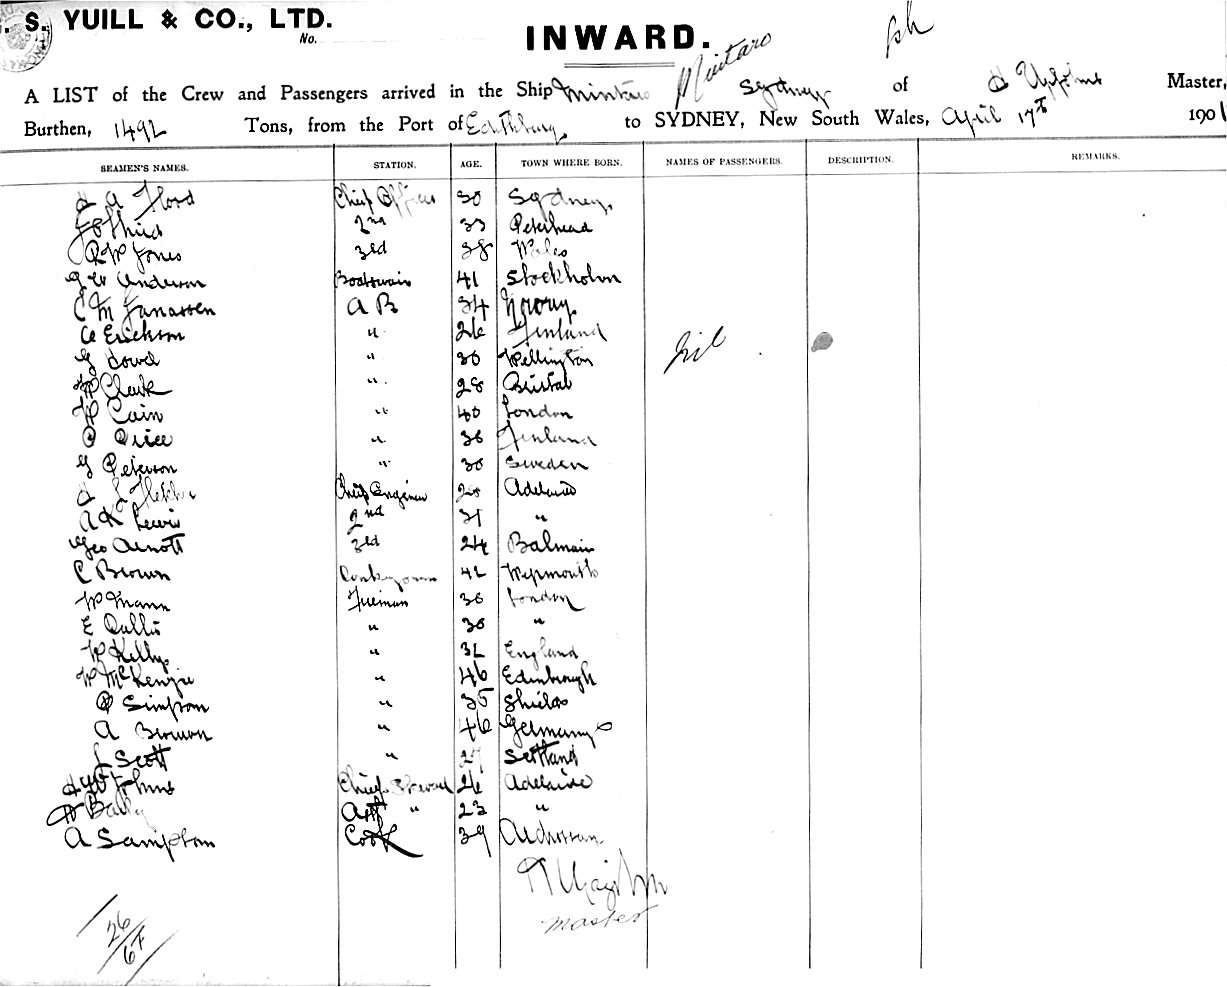 . S. YUILL & CO., LTD.
No.
INWARD.
Mintaro
A LIST of the Crew and Passengers arrived in the Ship Mintaro Sydney of Master,
Burthen, 1492 Tons, from the Port of Edithburg to SYDNEY, New South Wales, April 17th 1901
SEAMEN'S NAMES. STATION. AGE. TOWN WHERE BORN. NAMES OF PASSENGERS. DESCRIPTION. REMARKS.
A Flood Chief Officer 30 Sydney
2nd 33 Peterhead
R W Jones 3rd 38 Wales
G W Anderson Boatswain 41 Stockholm
C M Janassen A B 34 Norway
Erickson " 26 Finland
G Lowd " 30 Wellington nil
W Clark " 28 Bristol
W Cain " 40 London
" 36 Finland
G Peterson " 30 Sweden
Chief Engineer Adelaide
A K Lewis 2nd 31 "
Geo Arnott 3rd 24 Balmain
C Brown Donkeyman 42 Weymouth
W Mann Fireman 36 London
E " 30 "
W Kelly " 32 England
W McKenzie " 46 Edinbrough
Simpson " 35 Shields
A Brown " 46 Germany
Scott " 27 Scotland
Johns Chief Steward 26 Adelaide
Baily Asst " 23 "
A Sampson Cook 39 Ardrossan
Master
26/67